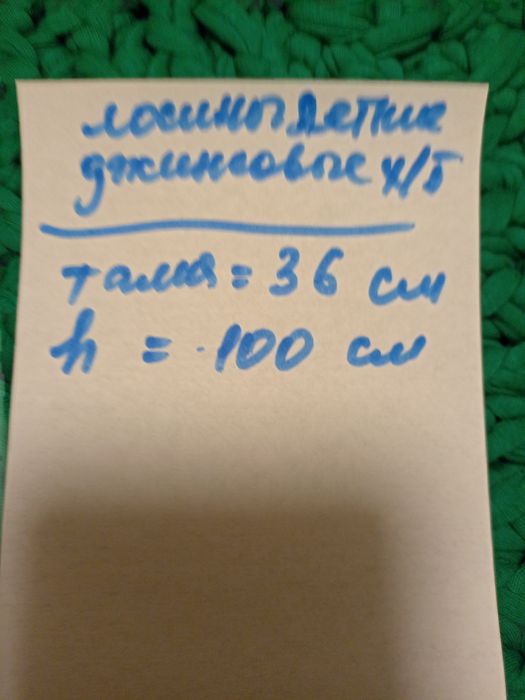 лосины летние
джинсовые х/б
талия = 36 см
h = 100 см